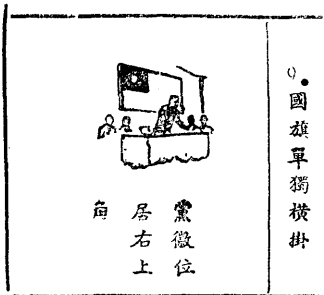 國旗單獨橫掛
黨徽位
居右上
角